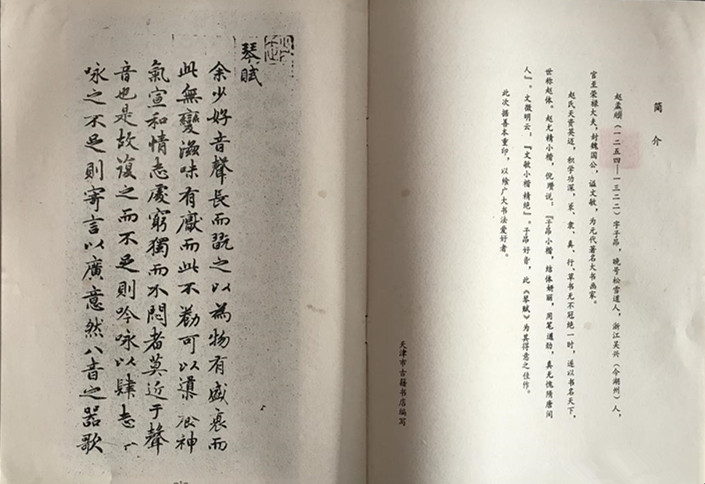 简介
赵孟頫（一二五四—一三二二）字子昂，晚号松雪道人，浙江吴兴（今湖州）人，
官至荣禄大夫，封魏国公，谥文敏，为元代著名大书画家。
赵氏天资英迈，积学功深，篆、隶、真、行、草书无不冠绝一时，遂以书名天下，
世称赵体。赵尤精小楷，倪瓒说，『子昂小楷，结体妍丽，用笔遒劲，真无愧隋唐间
人』。文徵明云：『文敏小楷精绝』。子昂好音，此《琴赋》为其得意之佳作。
此次据善本重印，以飨广大书法爱好者。
天津市古籍书店编写
琴賦
余少好音聲長而翫之以為物有盛衰而
此無變滋味有厭而此不勌可以導養神
氣宣和情志處窮獨而不悶者莫近于聲
音也是故復之而不足則吟咏以肆志
咏之不足則寄言以廣意然八音之器歌